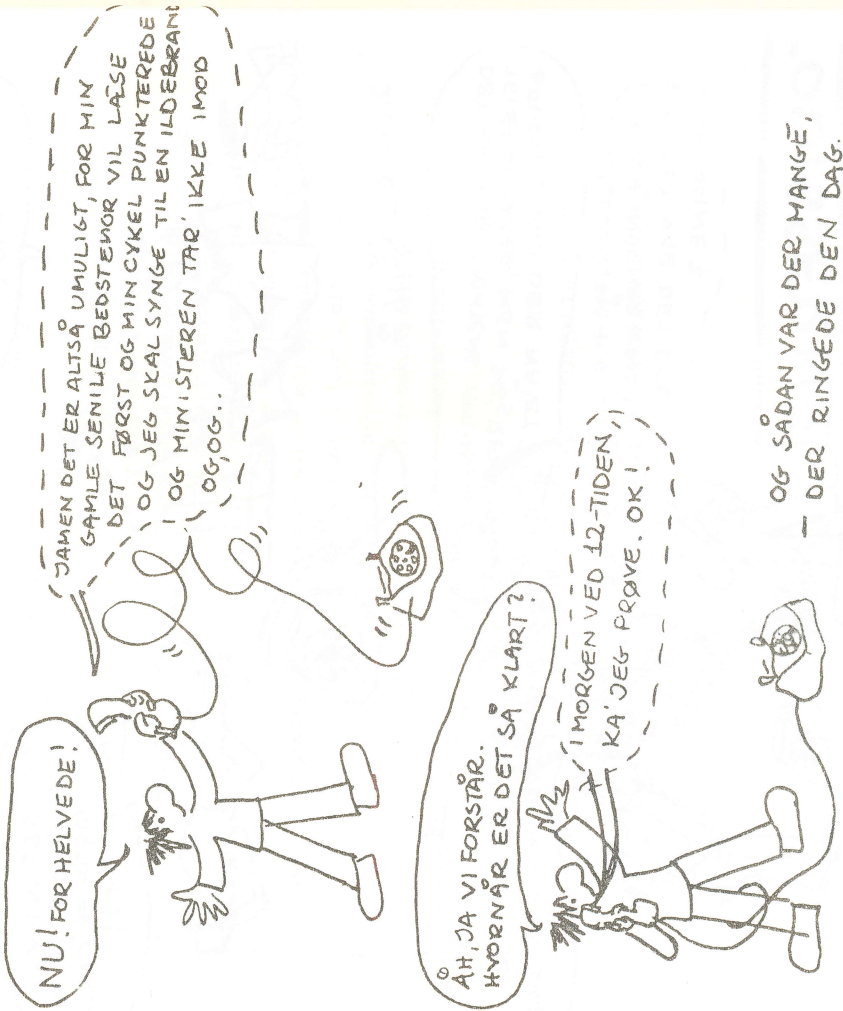 NU! FOR HELVEDE!
JAMEN DET ER ALTSÅ UMULIGT, FOR MIN
GAMLE SENILE BEDSTEMOR VIL LÆSE
DET FØRST OG MIN CYKEL PUNKTEREDE
OG JEG SKAL SYNGE TIL EN ILDEBRAND
OG MINISTEREN TAR' IKKE IMOD
OG, OG..
ÅH, JA VI FORSTÅR.
HVORNÅR ER DET SÅ KLART?
I MORGEN VED 12-TIDEN,
KA' JEG PRØVE. OK!
OG SÅDAN VAR DER MANGE,
– DER RINGEDE DEN DAG.